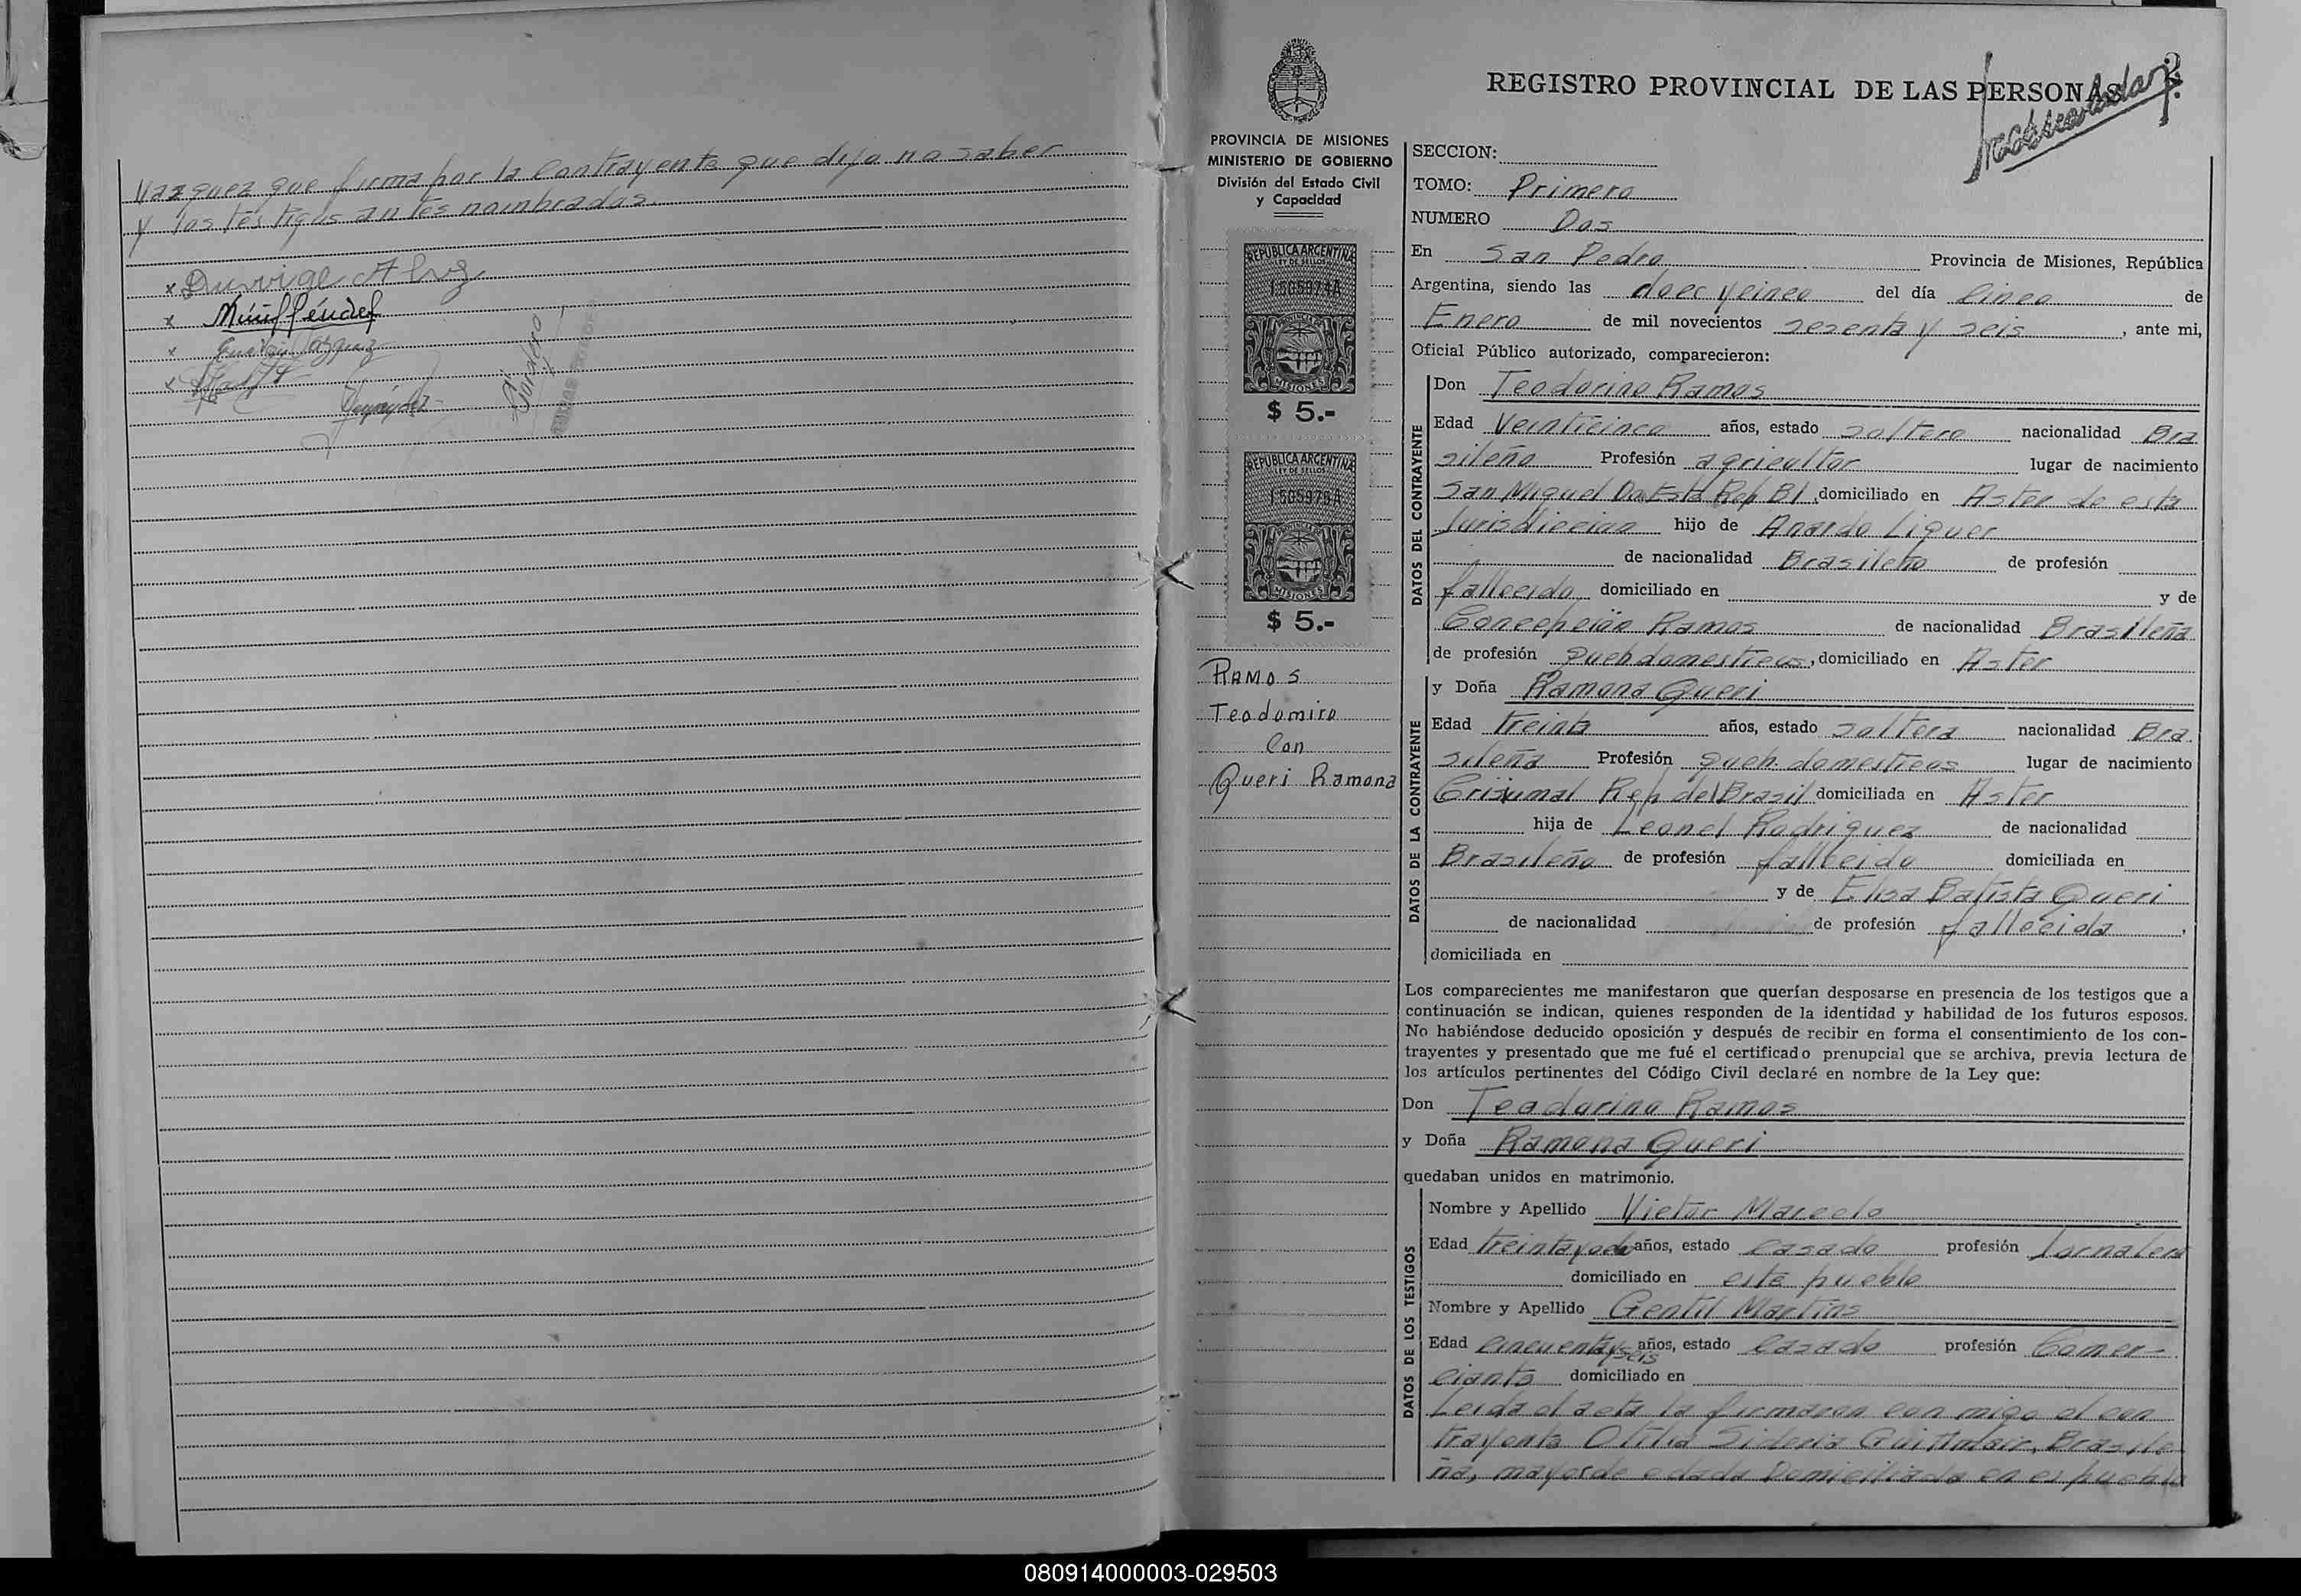 Vazquez que firma por la Contrayente que dijo no saber
y los testigos antes nombrados.
x
x
x Vazquez
x
PROVINCIA DE MISIONES
MINISTERIO DE GOBIERNO
División del Estado Civil
y Capacidad
REPUBLICA ARGENTINA
LEY DE SELLOS
1505974A
MISIONES
$ 5.-
REPUBLICA ARGENTINA
LEY DE SELLOS
1505975A
MISIONES
$ 5.-
RAMOS
Teodomiro
Con
Queri Ramona
REGISTRO PROVINCIAL DE LAS PERSONAS
SECCION:
TOMO: Primero
NUMERO Dos
En San Pedro Provincia de Misiones, República
Argentina, siendo las doce y cinco del día cinco de
Enero de mil novecientos sesenta y seis, ante mi,
Oficial Público autorizado, comparecieron:
DATOS DEL CONTRAYENTE
Don Teodorino Ramos
Edad Veinticinco años, estado soltero nacionalidad Bra
sileño Profesión agricultor lugar de nacimiento
San Miguel Rep Bl, domiciliado en Aster de esta
Jurisdiccion hijo de Anardo Liquer
de nacionalidad Brasileño de profesión
fallecido domiciliado en y de
Concepción Ramos de nacionalidad Brasileña
de profesión Queh domesticos, domiciliado en Aster
DATOS DE LA CONTRAYENTE
y Doña Ramona Queri
Edad treinta años, estado soltera nacionalidad Bra
sileña Profesión Queh. domesticos lugar de nacimiento
Crisiumal Rep del Brasil domiciliada en Aster
hija de Leonel Rodriguez de nacionalidad
Brasileño de profesión fallecido domiciliada en
y de Elisa Batista Queri
de nacionalidad de profesión fallecida,
domiciliada en
Los comparecientes me manifestaron que querían desposarse en presencia de los testigos que a
continuación se indican, quienes responden de la identidad y habilidad de los futuros esposos.
No habiéndose deducido oposición y después de recibir en forma el consentimiento de los con-
trayentes y presentado que me fué el certificado prenupcial que se archiva, previa lectura de
los artículos pertinentes del Código Civil declaré en nombre de la Ley que:
Don Teodorino Ramos
y Doña Ramona Queri
quedaban unidos en matrimonio.
DATOS DE LOS TESTIGOS
Nombre y Apellido Victor Marcelo
Edad treinta y ocho años, estado casado profesión Jornalero
domiciliado en este pueblo
Nombre y Apellido Gentil Martins
Edad cincuenta y seis años, estado casado profesión Comer-
ciante domiciliado en
Leida el acta la firmaron con migo el con
trayente Otilia Brasile
ña, mayor de edad Domiciliada en es pueblo
080914000003-029503